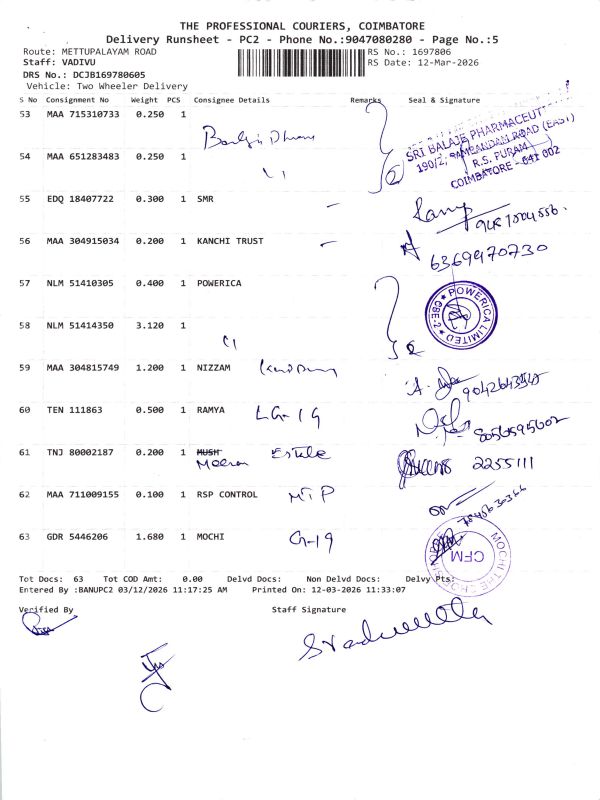 THE PROFESSIONAL COURIERS, COIMBATORE
Delivery Runsheet - PC2 - Phone No.:9047080280 - Page No.:5
Route: METTUPALAYAM ROAD RS No.: 1697806
Staff: VADIVU RS Date: 12-Mar-2026
DRS No.: DCJB169780605
Vehicle: Two Wheeler Delivery
S No Consignment No Weight PCS Consignee Details Remarks Seal & Signature
53 MAA 715310733 0.250 1
SRI BALAJE PHARMACEUT
190/2, SAMBANDAM ROAD (EAST)
R.S. PURAM
COIMBATORE - 641 002
54 MAA 651283483 0.250 1
55 EDQ 18407722 0.300 1 SMR
56 MAA 304915034 0.200 1 KANCHI TRUST
6369970730
57 NLM 51410305 0.400 1 POWERICA
POWERICA LIMITED
CBE-2
58 NLM 51414350 3.120 1
59 MAA 304815749 1.200 1 NIZZAM
60 TEN 111863 0.500 1 RAMYA LG-19
61 TNJ 80002187 0.200 1 MUSH Estate
Meeran 2255111
62 MAA 711009155 0.100 1 RSP CONTROL MTP
63 GDR 5446206 1.680 1 MOCHI G-19
MOCHI THE
CFM
Tot Docs: 63 Tot COD Amt: 0.00 Delvd Docs: Non Delvd Docs: Delvy Pts:
Entered By :BANUPC2 03/12/2026 11:17:25 AM Printed On: 12-03-2026 11:33:07
Verified By Staff Signature